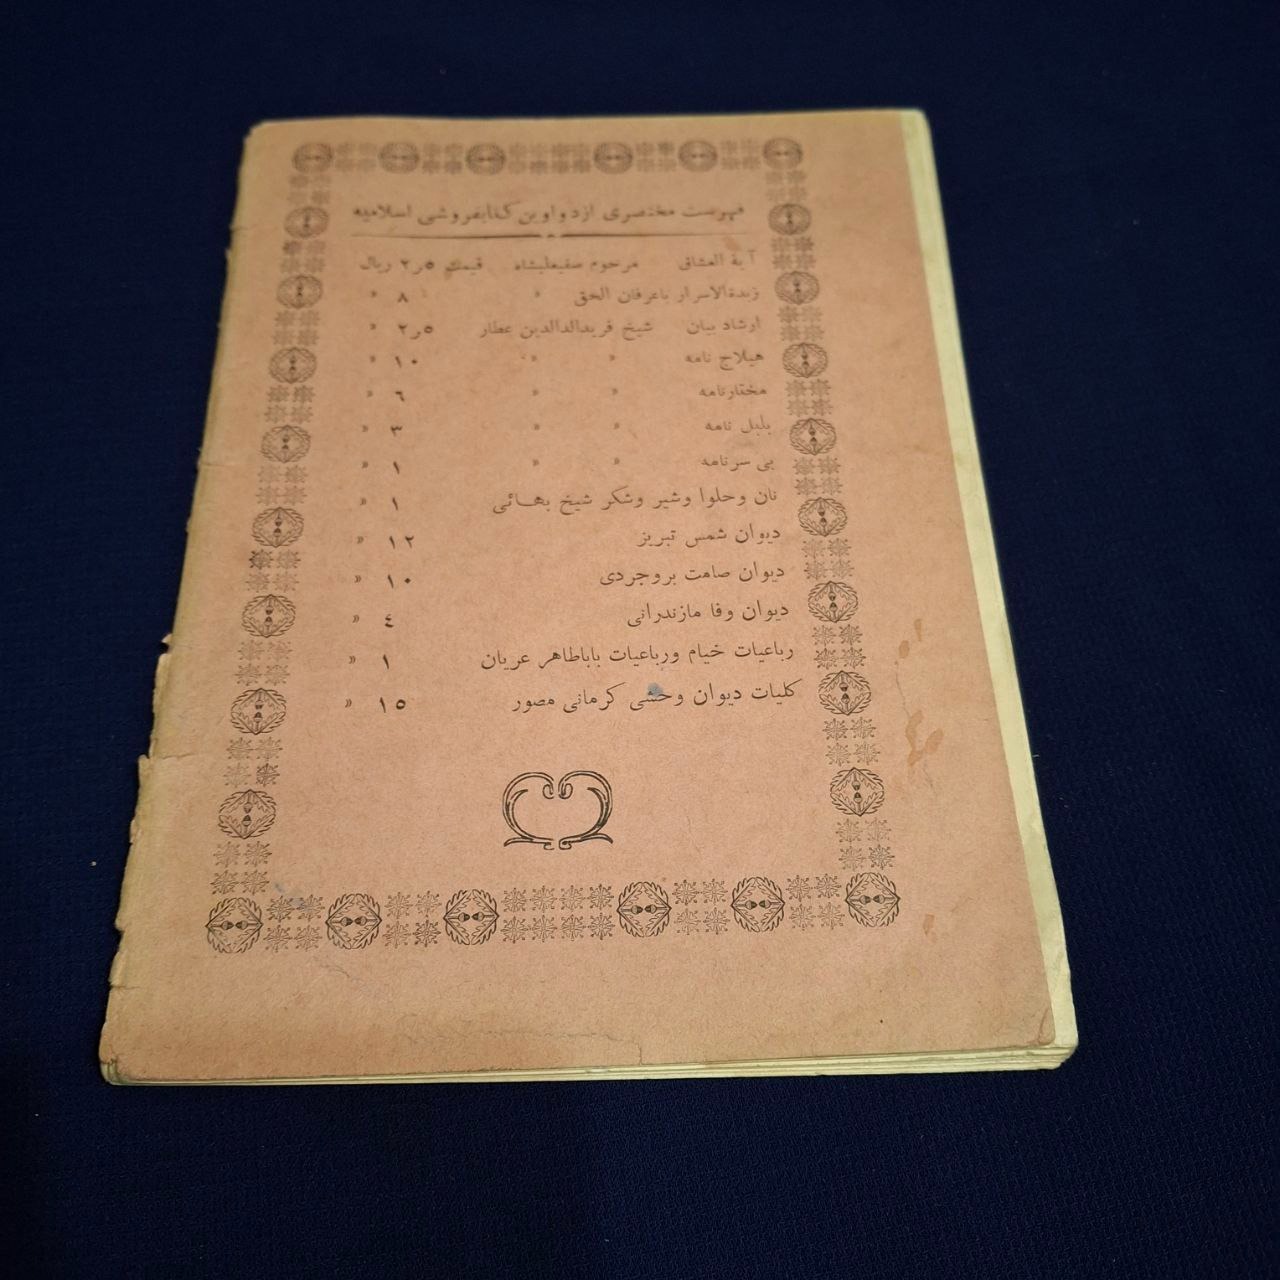 فهرست مختصری از دواوین کتابفروشی اسلامیه
آیة العشاق مرحوم صفیعلیشاه قیمت ۲٫۵ ریال
زبدةالاسرار یاعرفان الحق » ۸ »
ارشاد بیان شیخ فریدالدالدین عطار ۲٫۵ »
هیلاج نامه » » ۱۰ »
مختارنامه » » ٦ »
بلبل نامه » » ۳ »
بی سرنامه » » ۱ »
نان وحلوا وشیر وشکر شیخ بهـائی ۱ »
دیوان شمس تبریز ۱۲ »
دیوان صامت بروجردی ۱۰ »
دیوان وفا مازندرانی ٤ »
رباعیات خیام ورباعیات باباطاهر عریان ۱ »
کلیات دیوان وحشی کرمانی مصور ۱٥ »